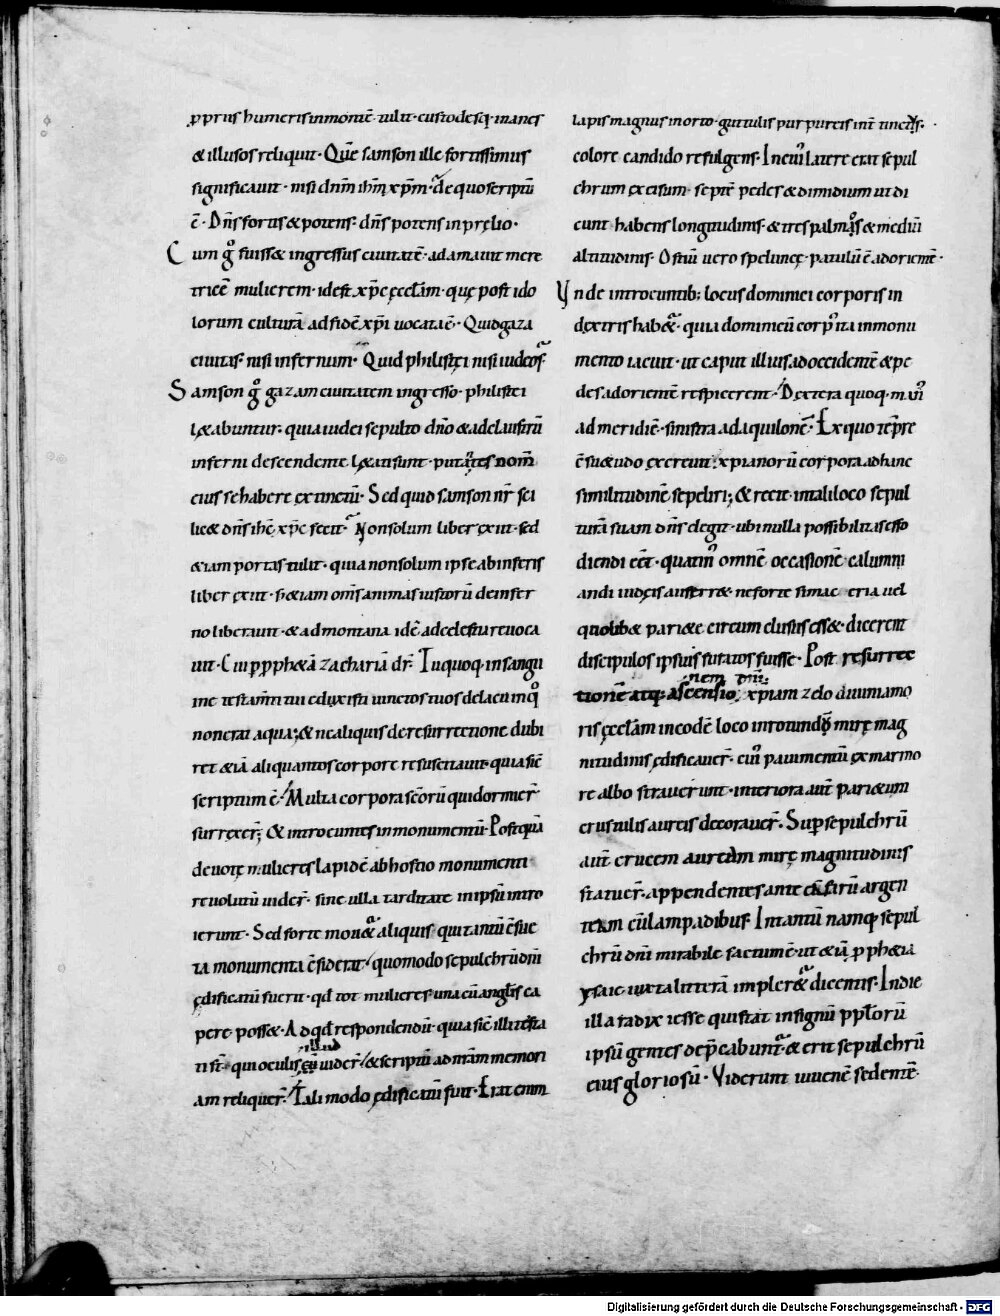 ꝓpriis humeris in monte᷑ tulit· custodesq; inanes
& illusos reliquit· Quē samson ille fortissimus
significauit· nisi dn̄m ih̄m xp̄m· de quo scriptū
ē· Dn̄s fortis & potens· dn̄s potens in pręlio·
Cum gͦ fuiss& ingressus ciuitatē· adamauit mere
tricē mulierem· idest xp̄c ęcclam̄· quę post ido
lorum culturā ad fidē xp̄i uocata ē· Quid gaza
ciuitas· nisi infernum· Quid philistei nisi iudeos
Samson gͦ gazam ciuitatem ingresso· philistei
l&abuntur· quia iudei sepulto dn̄o & ad claustrū
inferni descendente l&ati sunt· putantes nom̄
eius se habere extinctū· Sed quid samson nr̄ fei
lic& dn̄s ih̄c xp̄c fecit Non solum liber exiit· sed
&iam portas tulit· quia non solum ipse ab inferis
liber exiit· s; &iam om̄s animas iustorū de infer
no liberauit· & ad montana idē ad celestia reuoca
uit· Cui ꝑ ꝓph&ā zachariā dr̄· Tu quoq· in sangui
ine testam̄ti tui eduxisti uinctos tuos de lacu in qͦ
non erat aqua; & ne aliquis de resurrectione dubi
ret &iā aliquantos corpore resuscitauit· quia sic̄
scriptum ē· Multa corpora scōrū qui dormier̄
surrexer̄; & introeuntes in monumentū· Postquā
deuotę mulieres lapidē ab hostio monumenti
reuolutū uider̄· sine ulla tarditate in ipsū intro
ierunt· Sed forte mou& aliquis· qui tantū ē sue
ta monumenta ēsiderat· quomodo sepulchrū dn̄i
ędificatū fuerit· qđ tot mulieres una cū angl̄is ca
pere poss&· Ad qđ respondendū· quia sic̄ illi testa
illud
ti st̄· qui oculis eū uider̄· & scriptū ad nr̄am memori
am reliquer̄· Tali modo ędificatū fuit· Erat enim
lapis magnus in orto· guttulis purpureis int̄ tinctus·
colore candido refulgens· In cui᾽ latere erat sepul
chrum excisum· septē pedes & dimidium ut di
cunt habens longitudinis· & tres palmos & mediū
altitudinis· Ostiū uero speluncę· patulū ē ad orientē·
Vnde introeuntib; locus dominici corporis in
dextris hab&· quia dominicū corp᾽ ita in monu
mento iacuit· ut caput illius ad occidentē & pe
des ad orientē respicerent· Dextera quoq· man᾽
ad meridiē· sinistra ad aquilonē· Ex quo tēpre
ē suꝰ udo excreuit xpianorū corpora ad hanc
similitudinē sepeliri; & recte in tali loco sepul
turā suam dn̄s elegit· ubi nulla possibilitas esso
diendi eēt· quatin᾽ omnē occasionē calumni
andi iudęis auferr&· ne forte si mac eria uel
quolib& pari&e circum clusus ess&· dicerent
discipulos ipsius furatos fuisse· Post resurrec
nem dn̄i
tionē atq; ascensio; xpiam zelo diuini amo
ris ęcclam̄ in eodē loco in rotundo mirę mag
nitudinis ędificauer̄· cui᾽ pauimentū ex marmo
re albo strauerunt· interiora aut̄ pari&um
crustulis aureis decorauer̄· Sup sepulchrū
aut̄ crucem auream mirę magnitudinis
statuer̄· appendentes ante argen
team cū lampadibus· In tantū namq· sepul
chrū dn̄i mirabile factum ē· ut &iā ꝓph&ia
ysaię iuxta litterā impler& dicentis· In die
illa radix iesse qui stat in signū ppl̄orū
ipsū gentes dep̄cabunt᾽· & erit sepulchrū
eius gloriosū· Viderunt iuuenē sedentē·
Digitalisierung gefördert durch die Deutsche Forschungsgemeinschaft - DFG